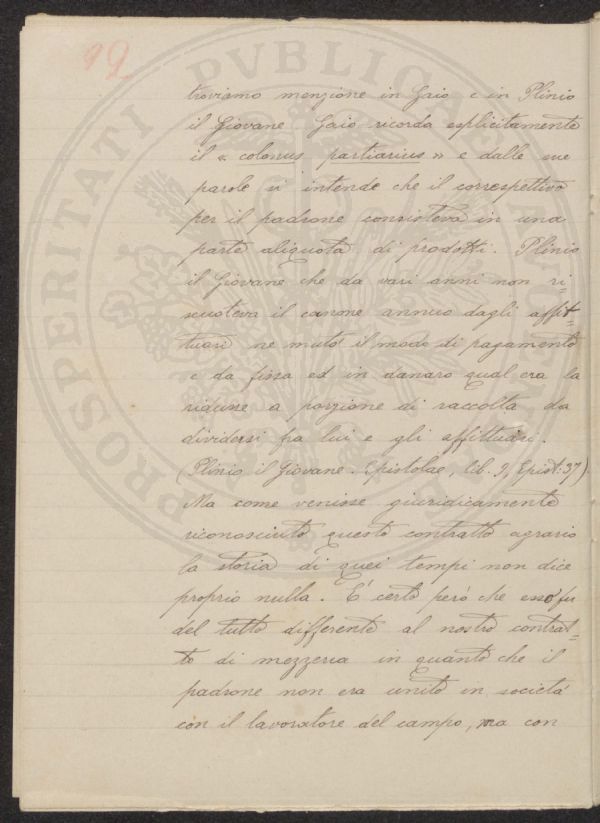 92
troviamo menzione in Gaio e in Plinio
il Giovane Gaio ricorda esplicitamente
il « colonus partiarius » e dalle sue
parole si intende che il correspettivo
per il padrone consisteva in una
parte aliquota di prodotti. Plinio
il Giovane che da vari anni non ri-
scuoteva il canone annuo dagli affit-
tuari ne mutò il modo di pagamento
e da fissa ed in danaro qual era la
ridusse a porzione di raccolta da
dividersi fra lui e gli affittuari.
(Plinio il Giovane. Epistolae, lib. 9, Epist. 37).
Ma come venisse giuridicamente
riconosciuto questo contratto agrario
la storia di quei tempi non dice
proprio nulla. E' certo però che esso fu
del tutto differente al nostro contrat-
to di mezzeria in quanto che il
padrone non era unito in società
con il lavoratore del campo, ma con
PROSPERITATI PVBLICAE